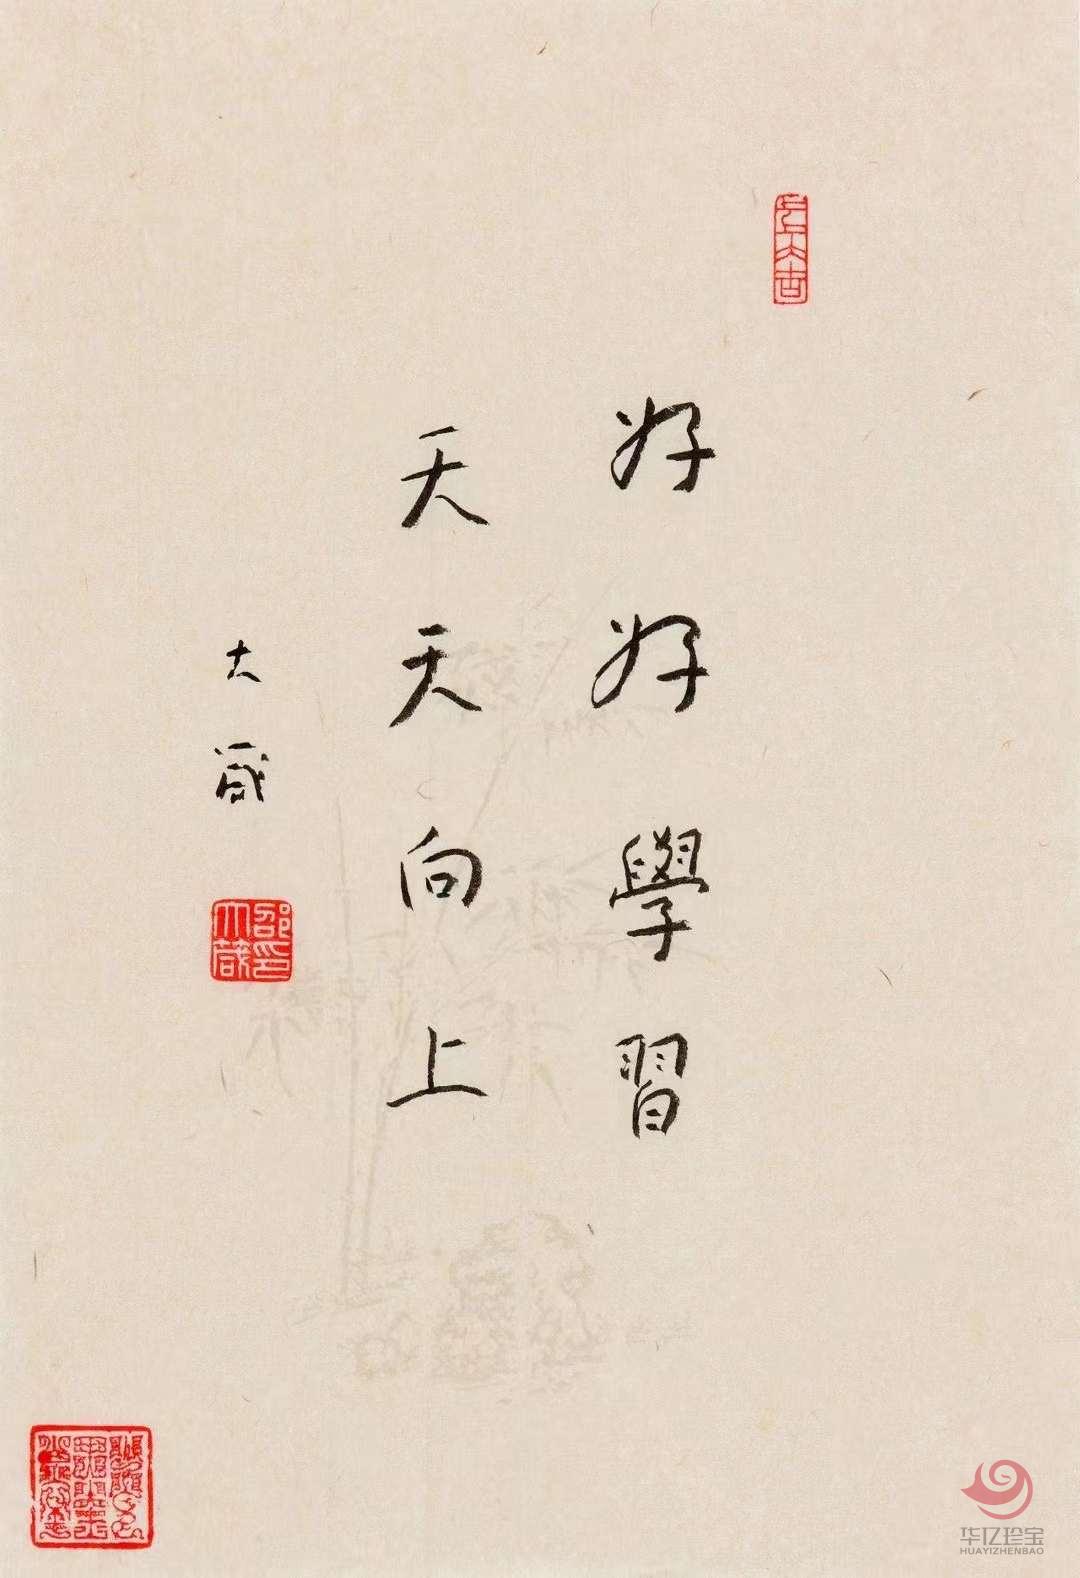 好好學習
天天向上
大箴
邵印大箴
华亿珍宝
HUAYIZHENBAO